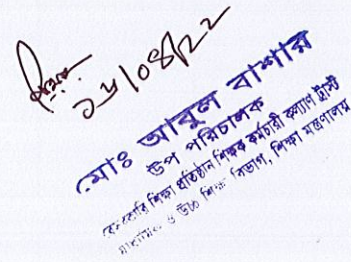 ২৬/০৪/২২
মোঃ আবুল বাশার
উপ পরিচালক
বেসরকারি শিক্ষা প্রতিষ্ঠান শিক্ষক কর্মচারী কল্যাণ ট্রাস্ট
মাধ্যমিক ও উচ্চ শিক্ষা বিভাগ, শিক্ষা মন্ত্রণালয়